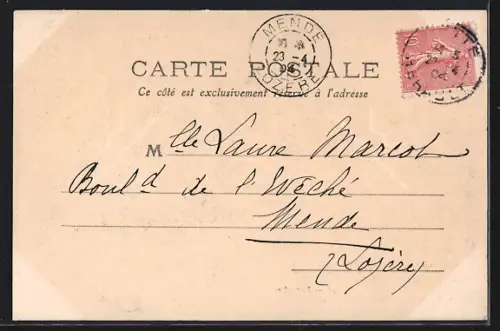 MENDE
23 -4
04
LOZERE
10
CARTE POSTALE
Ce côté est exclusivement réservé à l'adresse
Mlle Laure Marcot
Boul d de l'Evêché
Mende
(Lozère)